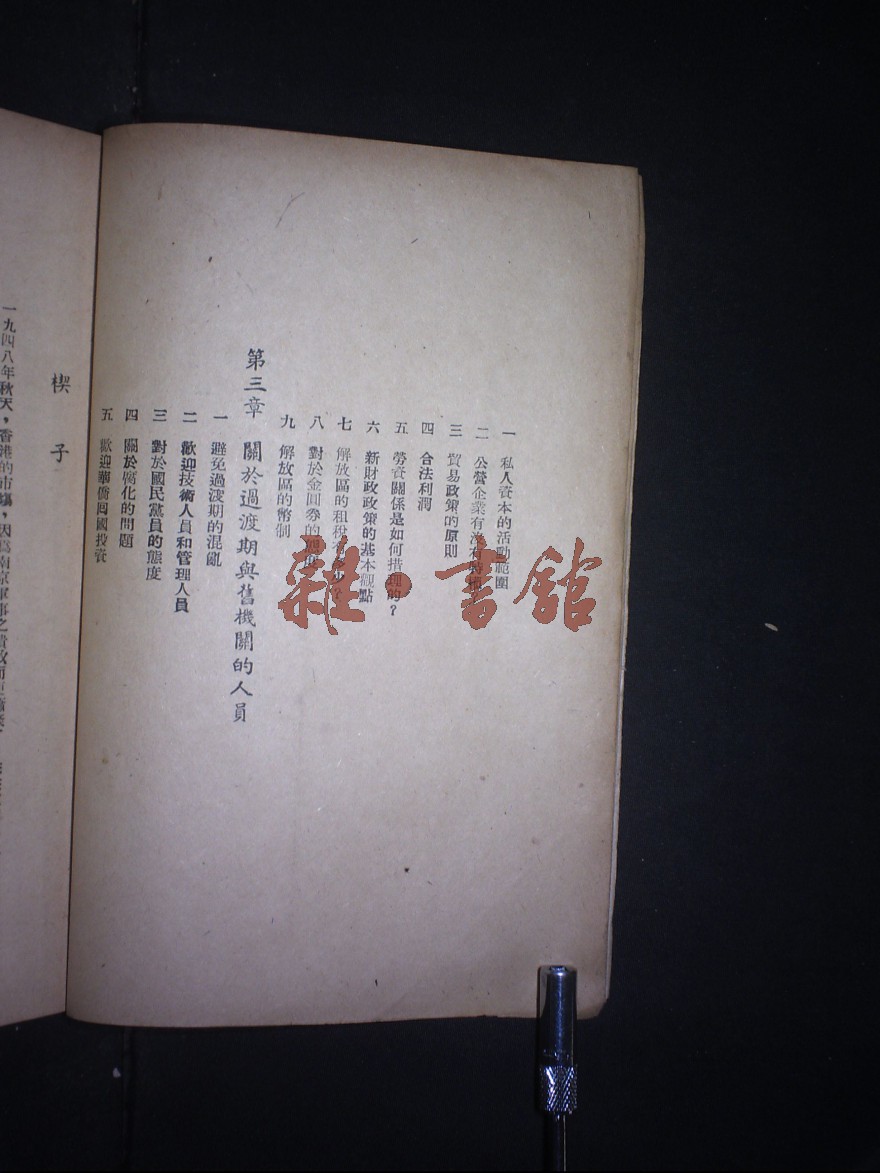 一 私人資本的活動範圍
二 公營企業有沒有
三 貿易政策的原則
四 合法利潤
五 勞資關係是如何措理的?
六 新財政政策的基本觀點
七 解放區的租稅
八 對於金圓券的
九 解放區的幣制
第三章 關於過渡期與舊機關的人員
一 避免過渡期的混亂
二 歡迎技術人員和管理人員
三 對於國民黨員的態度
四 關於腐化的問題
五 歡迎華僑回國投資
楔子
一九四八年秋天,香港的市場,因爲南京軍事之潰敗而
雜·書館